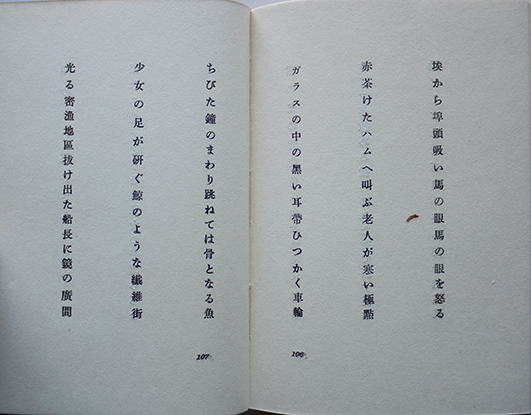 埃から埠頭吸い馬の眼馬の眼を怒る
赤茶けたハムへ叫ぶ老人が寒い極點
ガラスの中の黒い耳帶ひつかく車輪
106
ちびた鐘のまわり跳ねては骨となる魚
少女の足が研ぐ鯨のような纖維街
光る密漁地區抜け出た船長に鏡の廣間
107